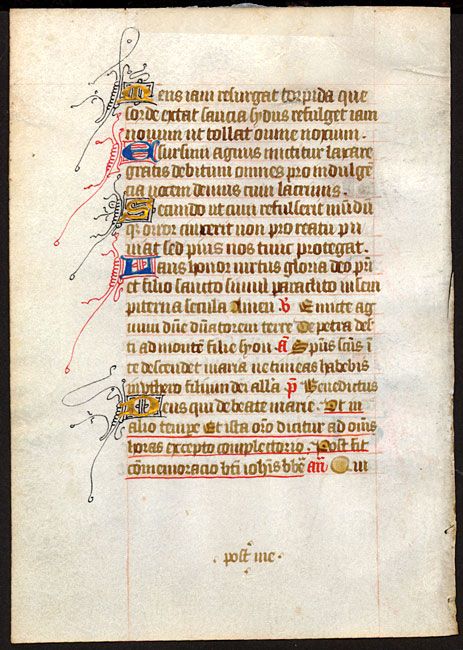 Mens iam resurgat torpida que
sorde extat saucia sydus refulget iam
nouum ut tollat omne noxium.
E sursum agnus mittitur laxare
gratis debitum omnes pro indulge
cia uocem demus cum lacrimis.
Secundo ut cum refulserit mūdū
qȝ orror cinxerit non pro reatu pu
niat sed pius nos tunc protegat.
Laus honor uirtus gloria deo pr̄i
et filio sancto simul paraclito in sem
piterna secula Amen ℣ Emicte ag
num dn̄e dn̄atorem terre De petra des
ti ad montē filie syon. an̄ Sp̄us sc̄us ī
te descendet maria ne timeas habebis
in uthero filium dei all'a p̄ Benedictus
Deus qui de beate marie. Et in
alio tempe Et ista oro dicatur ad om̄s
horas excepto complectorio. Post fit
cōmemoracio bt̄i ioh̄is bb̄e an̄ Qui
post me